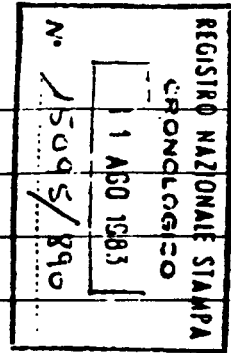 REGISTRO NAZIONALE STAMPA
CRONOLOGICO
11 AGO 1983
N° 15095/890